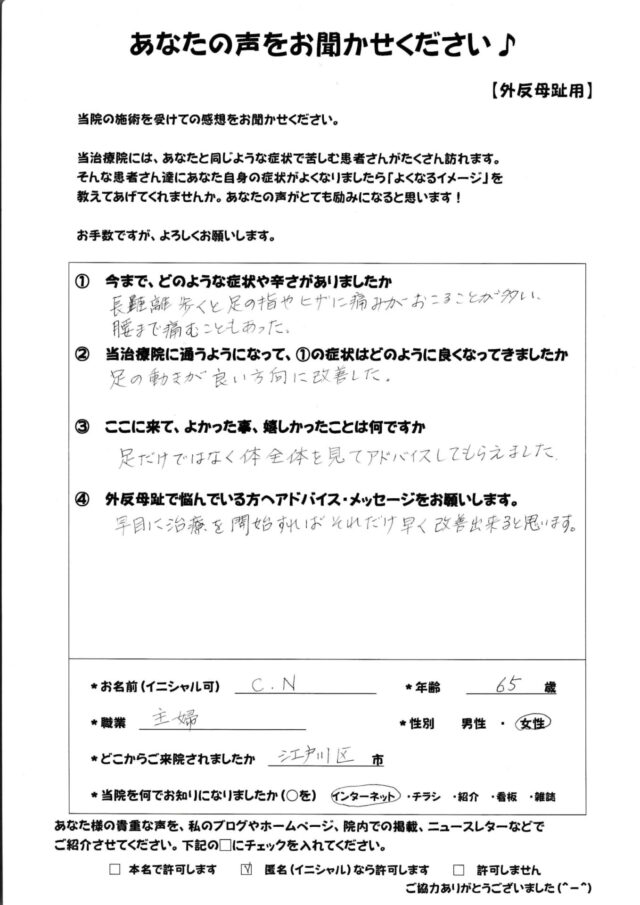 あなたの声をお聞かせください♪
【外反母趾用】
当院の施術を受けての感想をお聞かせください。
当治療院には、あなたと同じような症状で苦しむ患者さんがたくさん訪れます。
そんな患者さん達にあなた自身の症状がよくなりましたら「よくなるイメージ」を
教えてあげてくれませんか。あなたの声がとても励みになると思います!
お手数ですが、よろしくお願いします。
① 今まで、どのような症状や辛さがありましたか
長距離歩くと足の指やヒザに痛みがおこることが多い、
腰まで痛むこともあった。
② 当治療院に通うようになって、①の症状はどのように良くなってきましたか
足の動きが良い方向に改善した。
③ ここに来て、よかった事、嬉しかったことは何ですか
足だけではなく体全体を見てアドバイスしてもらえました。
④ 外反母趾で悩んでいる方へアドバイス・メッセージをお願いします。
早目に治療を開始すればそれだけ早く改善出来ると思います。
*お名前(イニシャル可) C.N *年齢 65 歳
*職業 主婦 *性別 男性 ・ 女性
*どこからご来院されましたか 江戸川区 市
*当院を何でお知りになりましたか(○を) インターネット ・チラシ ・紹介 ・看板 ・雑誌
あなた様の貴重な声を、私のブログやホームページ、院内での掲載、ニュースレターなどで
ご紹介させてください。下記の□にチェックを入れてください。
□ 本名で許可します ☑ 匿名(イニシャル)なら許可します □ 許可しません
ご協力ありがとうございました(^-^)